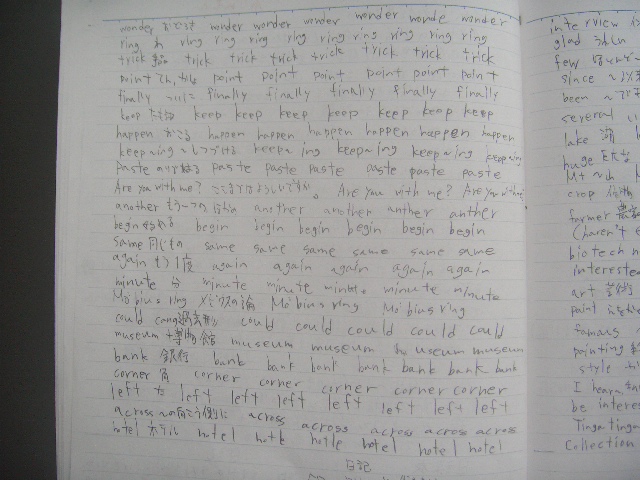 wonder wonder wonder wonder wonder wonde wonder
ring ring ring ring ring ring ring ring ring
trick trick trick trick trick trick trick
point point point point point point point
finally ついに finally finally finally finally finally
keep keep keep keep keep keep keep keep
happen おこる happen happen happen happen happen happen
keep~ing ~しつづける keep~ing keep~ing keep~ing keep~ing
paste paste paste paste paste paste paste
Are you with me? ここまではよろしいですか。 Are you with me? Are you with me
another another another anther anther
begin 始める begin begin begin begin begin begin
same 同じもの same same same same same same
again もう1度 again again again again again
minute 分 minute minute minute minute minute
Möbius ring メビウスの輪 Möbius ring Möbius ring
could canの過去形 could could could could could
museum 博物館 museum museum museum museum
bank 銀行 bank bank bank bank bank bank bank
corner 角 corner corner corner corner corner
left 左 left left left left left left left
across ~の向こう側に across across across across across
hotel ホテル hotel hotle hotle hotel hotel hotel
日記
interview
glad うれしい
few
since
been
several
lake 湖
huge 巨大な
Mt
crop 作物
farmer 農家
(haren't
biotech
interested
art 芸術
paint
famous
painting
style
I hear
be interes
Tingatinga
Collection